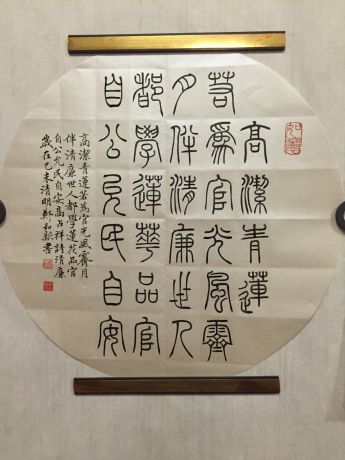 高潔青蓮
若為官光風霽
月伴清廉世人
都學蓮華品官
自公允民自安
高潔青蓮若為官光風霽月
伴清廉世人都學蓮花品官
自公允民自安高占祥詩清廉
歲在乙未清明鄭和新書